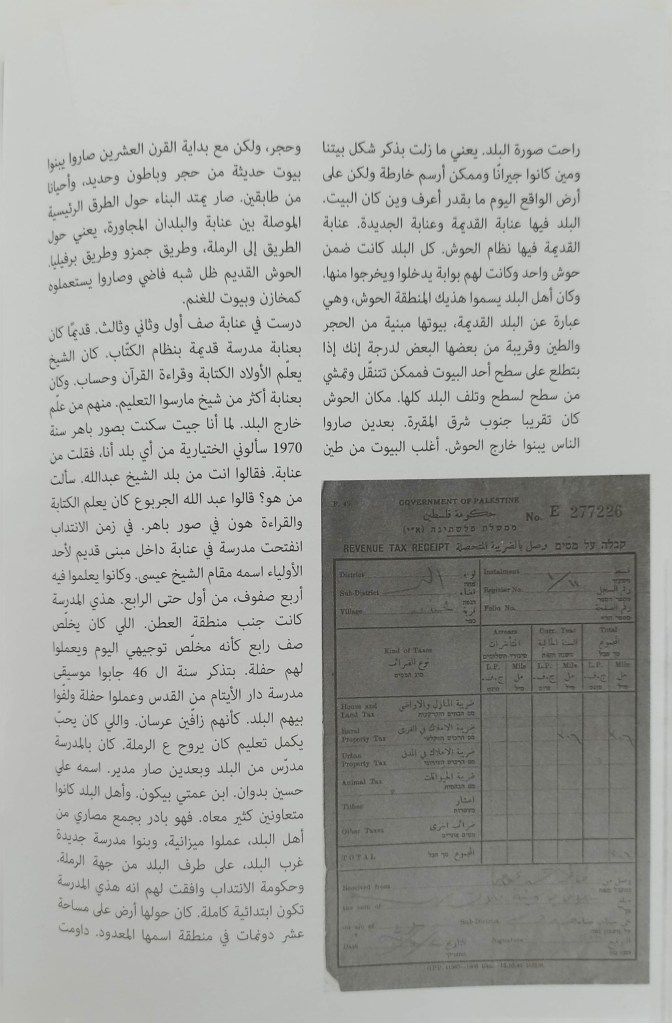 راحت صورة البلد. يعني ما زلت بذكر شكل بيتنا
ومين كانوا جيرانًا وممكن أرسم خارطة ولكن على
أرض الواقع اليوم ما بقدر أعرف وين كان البيت.
البلد فيها عنابة القديمة وعنابة الجديدة. عنابة
القديمة فيها نظام الحوش. كل البلد كانت ضمن
حوش واحد وكانت لهم بوابة يدخلوا ويخرجوا منها.
وكان أهل البلد يسموا هذيك المنطقة الحوش، وهي
عبارة عن البلد القديمة، بيوتها مبنية من الحجر
والطين وقريبة من بعضها البعض لدرجة إنك إذا
بتطلع على سطح أحد البيوت فممكن تتنقّل وتمشي
من سطح لسطح وتلف البلد كلها. مكان الحوش
كان تقريبا جنوب شرق المقبرة. بعدين صاروا
الناس يبنوا خارج الحوش. أغلب البيوت من طين
GOVERNMENT OF PALESTINE
حكومة فلسطين
ממשלת פלשתינה (א״י)
No. E 277226
REVENUE TAX RECEIPT وصل بالضريبة المتحصلة קבלה על מסים
District
لواء
Instalment
Sub-District
قضاء
Register No.
Village
قرية
Folio No.
Kind of Taxes
نوع الضرائب
Arrears
Curr. Year
Total
L.P. Mils L.P. Mils L.P. Mils
House and Land Tax
ضريبة المنازل والاراضي
Rural Property Tax
ضريبة الاملاك في القرى
Urban Property Tax
ضريبة الاملاك في المدن
Animal Tax
ضريبة الحيوانات
Tithes
اعشار
Other Taxes
ضرائب اخرى
TOTAL
المجموع
Received from
the sum of
Sub-District
Date
Signature
وحجر، ولكن مع بداية القرن العشرين صاروا يبنوا
بيوت حديثة من حجر وباطون وحديد، وأحيانًا
من طابقين. صار يمتد البناء حول الطرق الرئيسية
الموصلة بين عنابة والبلدان المجاورة، يعني حول
الطريق إلى الرملة، وطريق جمزو وطريق برفيليا.
الحوش القديم ظل شبه فاضي وصاروا يستعملوه
كمخازن وبيوت للغنم.
درست في عنابة صف أول وثاني وثالث. قديمًا كان
بعنابة مدرسة قديمة بنظام الكتّاب. كان الشيخ
يعلّم الأولاد الكتابة وقراءة القرآن وحساب. وكان
بعنابة أكثر من شيخ مارسوا التعليم. منهم من علّم
خارج البلد. لما أنا جيت سكنت بصور باهر سنة
1970 سألوني الختيارية من أي بلد أنا، فقلت من
عنابة. فقالوا انت من بلد الشيخ عبدالله. سألت
من هو؟ قالوا عبد الله الجربوع كان يعلم الكتابة
والقراءة هون في صور باهر. في زمن الانتداب
انفتحت مدرسة في عنابة داخل مبنى قديم لأحد
الأولياء اسمه مقام الشيخ عيسى. وكانوا يعلموا فيه
أربع صفوف، من أول حتى الرابع. هذي المدرسة
كانت جنب منطقة العطن. اللي كان يخلّص
صف رابع كأنه مخلّص توجيهي اليوم ويعملوا
لهم حفلة. بتذكر سنة ال 46 جابوا موسيقى
مدرسة دار الأيتام من القدس وعملوا حفلة ولفّوا
بيهم البلد. كأنهم زافّين عرسان. واللي كان يحبّ
يكمل تعليم كان يروح ع الرملة. كان بالمدرسة
مدرّس من البلد وبعدين صار مدير. اسمه علي
حسين بدوان. ابن عمتي بيكون. وأهل البلد كانوا
متعاونين كثير معاه. فهو بادر بجمع مصاري من
أهل البلد، عملوا ميزانية، وبنوا مدرسة جديدة
غرب البلد، على طرف البلد من جهة الرملة.
وحكومة الانتداب وافقت لهم انه هذي المدرسة
تكون ابتدائية كاملة. كان حولها أرض على مساحة
عشر دونمات في منطقة اسمها المعدود. داومت